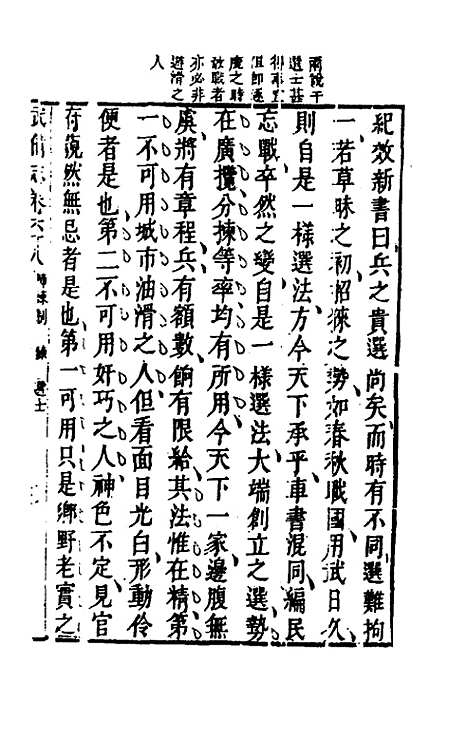 兩說干
選士甚
得事宜
但卽逐
度之時
敢戰者
亦必非
遊滑之
人
紀效新書曰兵之貴選尚矣而時有不同選難拘
一若草昧之初招徠之勢如春秋戰國用武日久
則自是一樣選法方今天下承平車書混同編民
忘戰卒然之變自是一樣選法大端創立之選勢
在廣攬分揀等率均有所用今天下一家邊腹無
虞將有章程兵有額數餉有限給其法惟在精第
一不可用城市油滑之人但看面目光白形動伶
便者是也第二不可用奸巧之人神色不定見官
府藐然無忌者是也第一可用只是鄉野老實之
武備志卷六十八 陣練制 練 選士